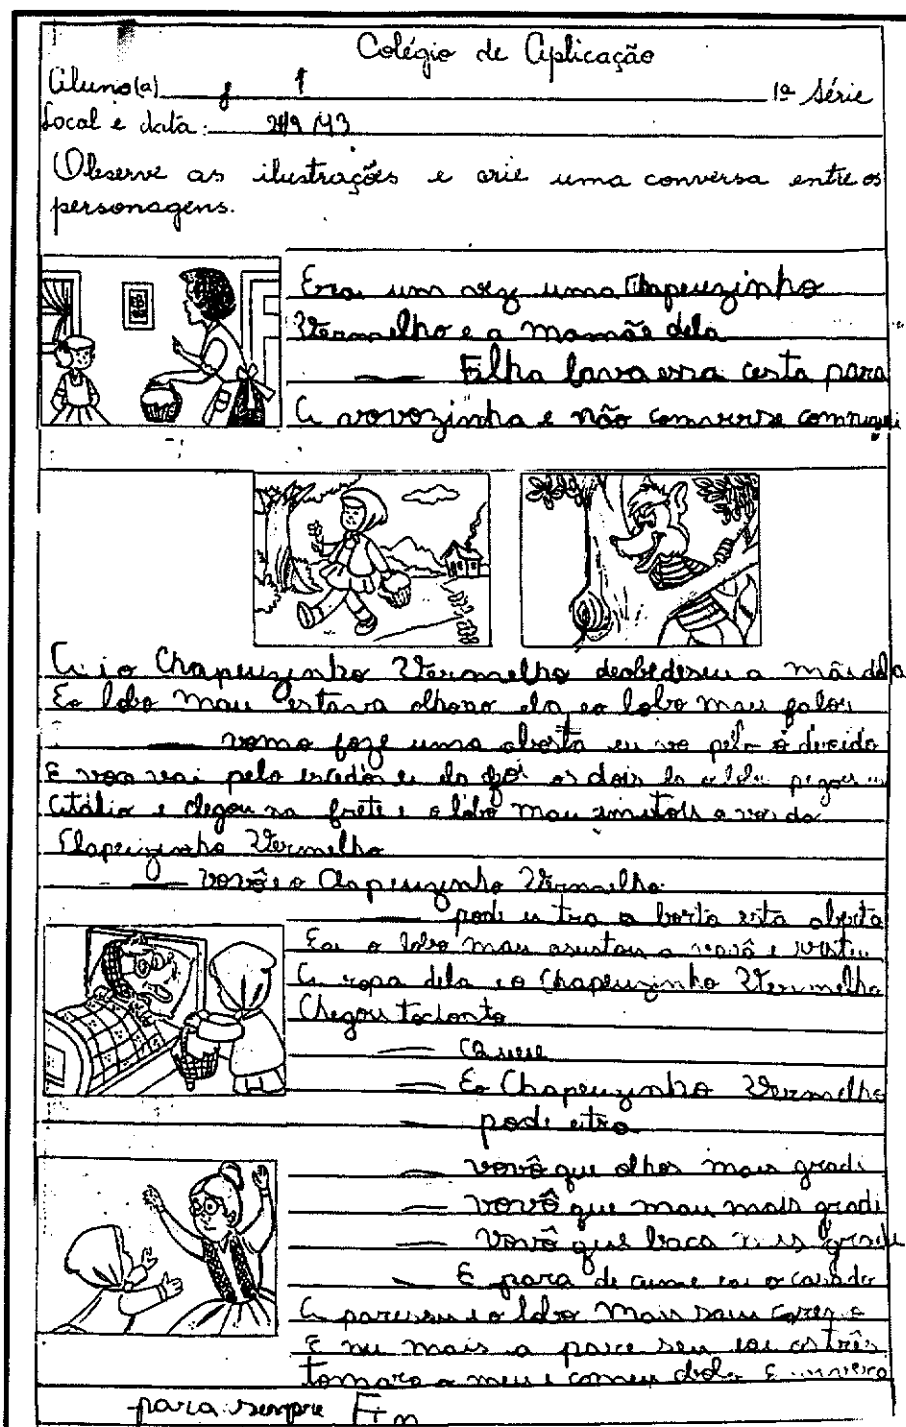 Colégio de Aplicação
Aluno(a) 1ª Série
Local e data:
Observe as ilustrações e crie uma conversa entre os
personagens.
Era um vez uma Chapeuzinho
Vermelho e a mamãe dela
— Filha lava essa cesta para
A vovozinha e não converse com
A i o Chapeuzinho Vermelho desobedeseu a mãe dela
E o lobo mau estava olhano ela e o lobo mau falou
— vomo faze uma aposta eu vo pelo
E voce vai pelo e os dois o lobo pegou
e chegou na frete e o lobo mau a voz da
Chapeuzinho Vermelho
— vovô e o Chapeuzinho Vermelho
— pode e tra a porta esta aberta
E ai o lobo mau asustou a vovô e vistiu
A ropa dela e o Chapeuzinho Vermelho
Chegou
— Qeuee
— E o Chapeuzinho Vermelho
— pode etra
— vovô que olhos mais gradi
— vovô que mau mais gradi
— vovô que baca mais gradi
— E para de cume e ai o casado
A pareseu e o lobo mais saiu
E nu mais a parce seu e ai os três
tomara
para sempre Fim